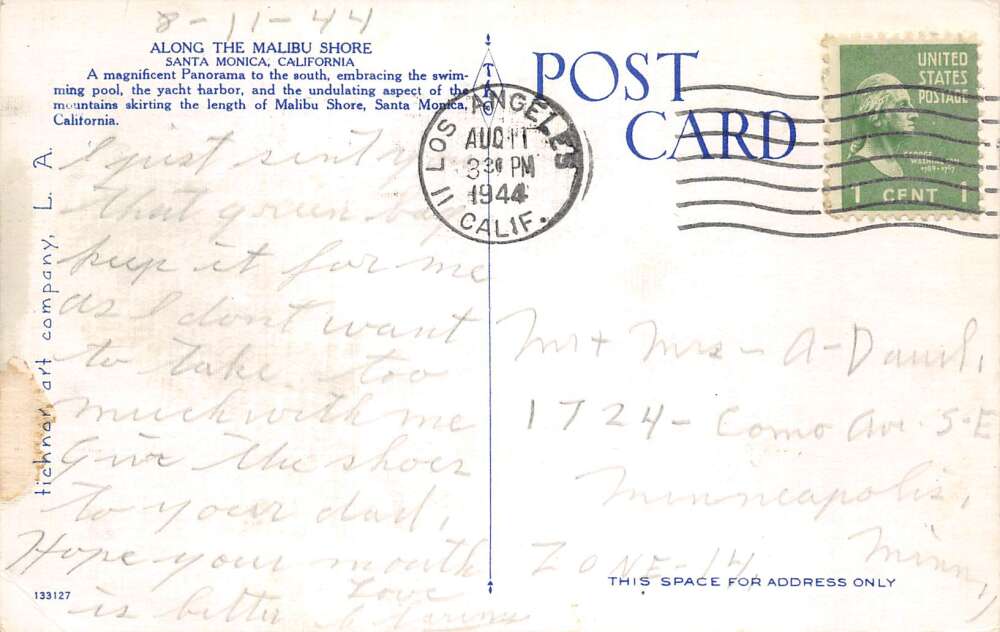 8-11-44
ALONG THE MALIBU SHORE
SANTA MONICA, CALIFORNIA
A magnificent Panorama to the south, embracing the swim-
ming pool, the yacht harbor, and the undulating aspect of the
mountains skirting the length of Malibu Shore, Santa Monica,
California.
POST
CARD
UNITED
STATES
POSTAGE
GEORGE
WASHINGTON
1789-1797
1 CENT 1
LOS ANGELES
AUG 11
3 30 PM
1944
11 CALIF.
tichnor art company, L. A.
I just sent
that green
keep it for me
as I dont want
to take too
much with me
Give the shoes
to your dad,
Hope your mouth
is better
Love
Mr + Mrs - A-
1724- Como Ave. S-E
Minneapolis,
Minn,
ZONE-14,
THIS SPACE FOR ADDRESS ONLY
133127